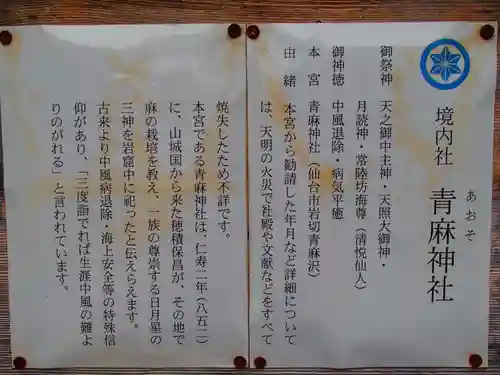 境内社 青麻神社
あおそ
御祭神 天之御中主神・天照大御神・
月読神・常陸坊海尊(清悦仙人)
御神徳 中風退除・病気平癒
本宮 青麻神社(仙台市岩切青麻沢)
由緒 本宮から勧請した年月など詳細について
は、天明の火災で社殿や文献などをすべて
焼失したため不詳です。
本宮である青麻神社は、仁寿二年(八五二)
に、山城国から来た穂積保昌が、その地で
麻の栽培を教え、一族の尊崇する日月星の
三神を岩窟中に祀ったと伝えらえます。
古来より中風病退除・海上安全等の特殊信
仰があり、「三度詣でれば生涯中風の難よ
りのがれる」と言われています。